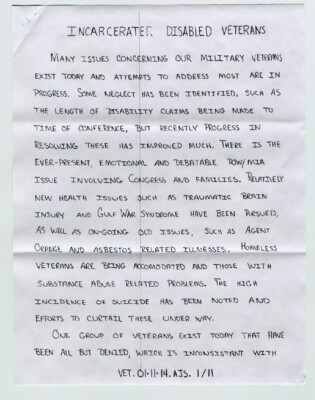 INCARCERATED DISABLED VETERANS
MANY ISSUES CONCERNING OUR MILITARY VETERANS
EXIST TODAY AND ATTEMPTS TO ADDRESS MOST ARE IN
PROGRESS. SOME NEGLECT HAS BEEN IDENTIFIED, SUCH AS
THE LENGTH OF DISABILITY CLAIMS BEING MADE TO
TIME OF CONFERENCE, BUT RECENTLY PROGRESS IN
RESOLVING THESE HAS IMPROVED MUCH. THERE IS THE
EVER-PRESENT, EMOTIONAL AND DEBATABLE POW/MIA
ISSUE INVOLVING CONGRESS AND FAMILIES. RELATIVELY
NEW HEALTH ISSUES SUCH AS TRAUMATIC BRAIN
INJURY AND GULF WAR SYNDROME HAVE BEEN PURSUED,
AS WELL AS ON-GOING OLD ISSUES, SUCH AS AGENT
ORANGE AND ASBESTOS RELATED ILLNESSES. HOMELESS
VETERANS ARE BEING ACCOMODATED AND THOSE WITH
SUBSTANCE ABUSE RELATED PROBLEMS. THE HIGH
INCIDENCE OF SUICIDE HAS BEEN NOTED AND
EFFORTS TO CURTAIL THESE UNDER WAY.
ONE GROUP OF VETERANS EXIST TODAY THAT HAVE
BEEN ALL BUT DENIED, WHICH IS INCONSISTANT WITH
VET. 01-11-14. AJS. 1/11